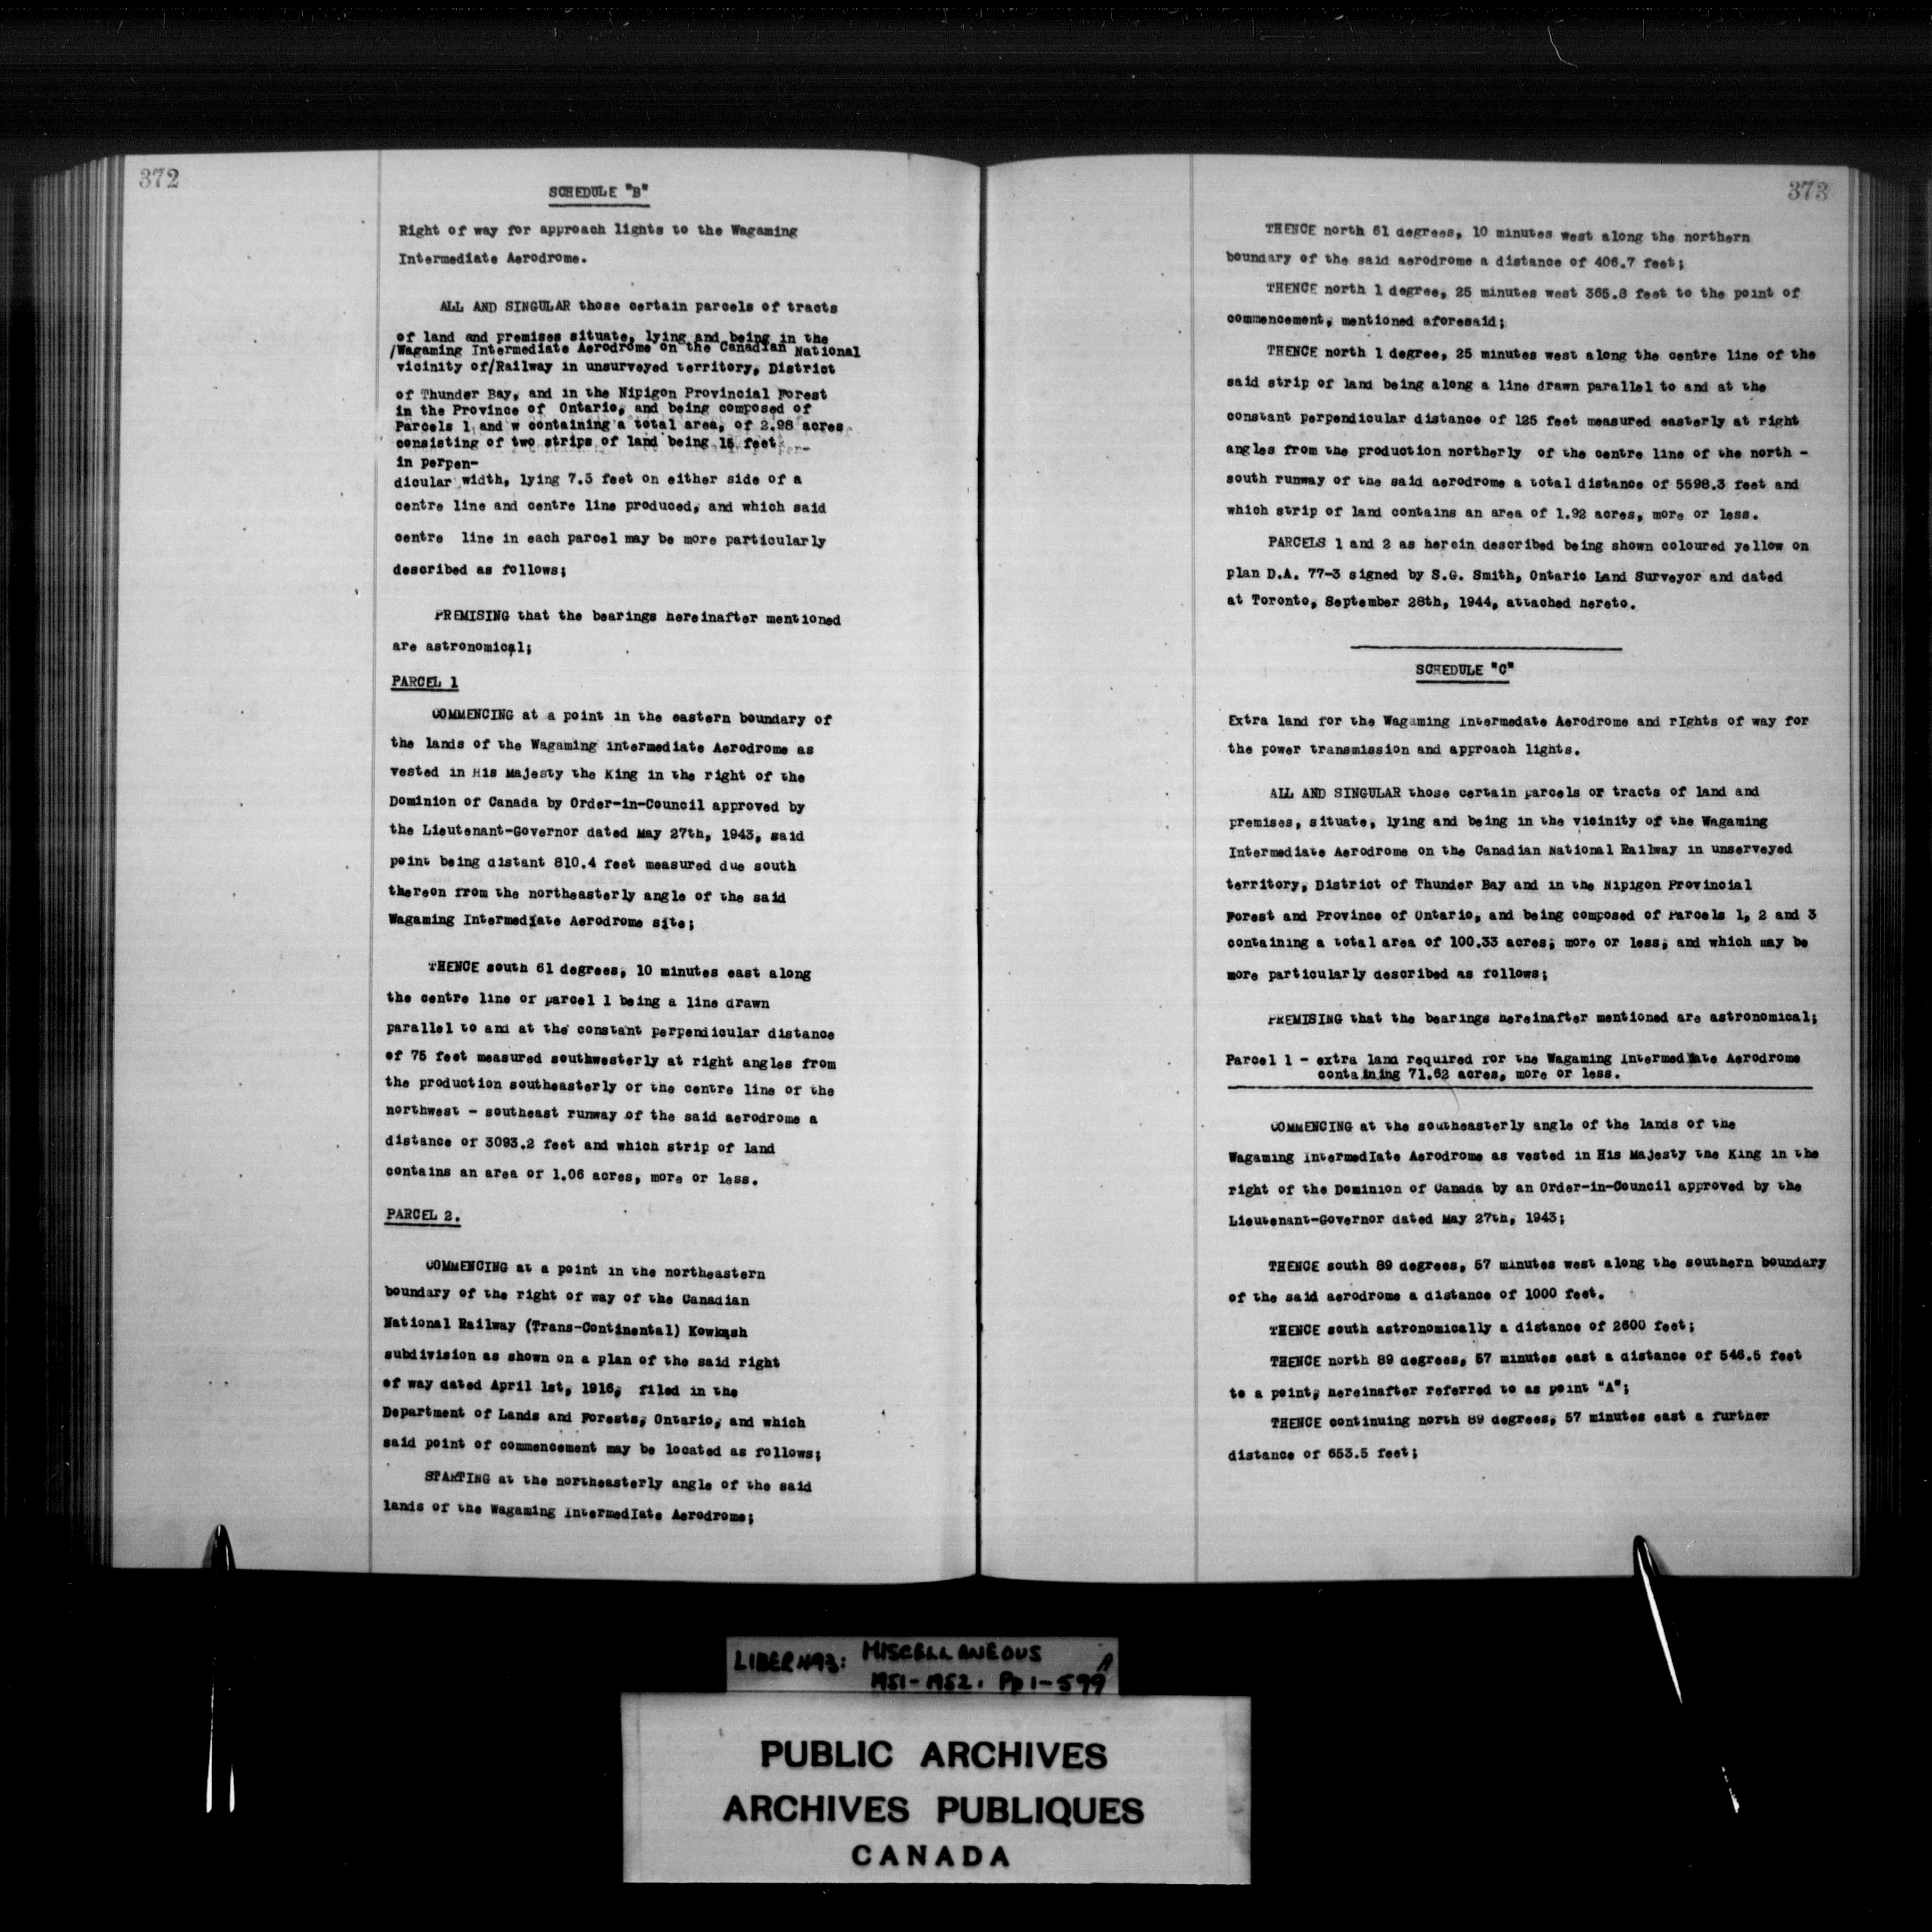 372
SCHEDULE "B"
Right of way for approach lights to the Wagaming
Intermediate Aerodrome.
ALL AND SINGULAR those certain parcels of tracts
of land and premises situate, lying and being in the
/Wagaming Intermediate Aerodrome on the Canadian National
vicinity of/Railway in unsurveyed territory, District
of Thunder Bay, and in the Nipigon Provincial Forest
in the Province of Ontario, and being composed of
Parcels 1 and w containing a total area, of 2.98 acres
consisting of two strips of land being 15 feet
in perpen-
dicular width, lying 7.5 feet on either side of a
centre line and centre line produced, and which said
centre line in each parcel may be more particularly
described as follows;
PREMISING that the bearings hereinafter mentioned
are astronomical;
PARCEL 1
COMMENCING at a point in the eastern boundary of
the lands of the Wagaming intermediate Aerodrome as
vested in His Majesty the King in the right of the
Dominion of Canada by Order-in-Council approved by
the Lieutenant-Governor dated May 27th, 1943, said
point being distant 810.4 feet measured due south
thereon from the northeasterly angle of the said
Wagaming Intermediate Aerodrome site;
THENCE south 61 degrees, 10 minutes east along
the centre line of parcel 1 being a line drawn
parallel to and at the constant perpendicular distance
of 75 feet measured southwesterly at right angles from
the production southeasterly of the centre line of the
northwest - southeast runway of the said aerodrome a
distance of 3093.2 feet and which strip of land
contains an area of 1.06 acres, more or less.
PARCEL 2.
COMMENCING at a point in the northeastern
boundary of the right of way of the Canadian
National Railway (Trans-Continental) Kowkash
subdivision as shown on a plan of the said right
of way dated April 1st, 1916, filed in the
Department of Lands and Forests, Ontario, and which
said point of commencement may be located as follows;
STARTING at the northeasterly angle of the said
lands of the Wagaming IntermedIate Aerodrome;
373
THENCE north 61 degrees, 10 minutes west along the northern
boundary of the said aerodrome a distance of 406.7 feet;
THENCE north 1 degree, 25 minutes west 365.8 feet to the point of
commencement, mentioned aforesaid;
THENCE north 1 degree, 25 minutes west along the centre line of the
said strip of land being along a line drawn parallel to and at the
constant perpendicular distance of 125 feet measured easterly at right
angles from the production northerly of the centre line of the north -
south runway of the said aerodrome a total distance of 5598.3 feet and
which strip of land contains an area of 1.92 acres, more or less.
PARCELS 1 and 2 as herein described being shown coloured yellow on
plan D.A. 77-3 signed by S.G. Smith, Ontario Land Surveyor and dated
at Toronto, September 28th, 1944, attached hereto.
SCHEDULE "C"
Extra land for the Wagaming Intermedate Aerodrome and rIghts of way for
the power transmission and approach lights.
ALL AND SINGULAR those certain parcels or tracts of land and
premises, situate, lying and being in the vicinity of the Wagaming
Intermediate Aerodrome on the Canadian National Railway in unserveyed
territory, District of Thunder Bay and in the Nipigon Provincial
Forest and Province of Ontario, and being composed of Parcels 1, 2 and 3
containing a total area of 100.33 acres, more or less, and which may be
more particularly described as follows;
PREMISING that the bearings hereinafter mentioned are astronomical;
Parcel 1 - extra land required for the Wagaming Intermediate Aerodrome
containing 71.62 acres, more or less.
COMMENCING at the southeasterly angle of the lands of the
Wagaming IntermedIate Aerodrome as vested in His Majesty the King in the
right of the Dominion of Canada by an Order-in-Council approved by the
Lieutenant-Governor dated May 27th, 1943;
THENCE south 89 degrees, 57 minutes west along the southern boundary
of the said aerodrome a distance of 1000 feet.
THENCE south astronomically a distance of 2600 feet;
THENCE north 89 degrees, 57 minutes east a distance of 546.5 feet
to a point, hereinafter referred to as point "A";
THENCE continuing north 89 degrees, 57 minutes east a further
distance of 653.5 feet;
LIBER 493: MISCELLANEOUS
1951-1952. Pp 1-599 A
PUBLIC ARCHIVES
ARCHIVES PUBLIQUES
CANADA